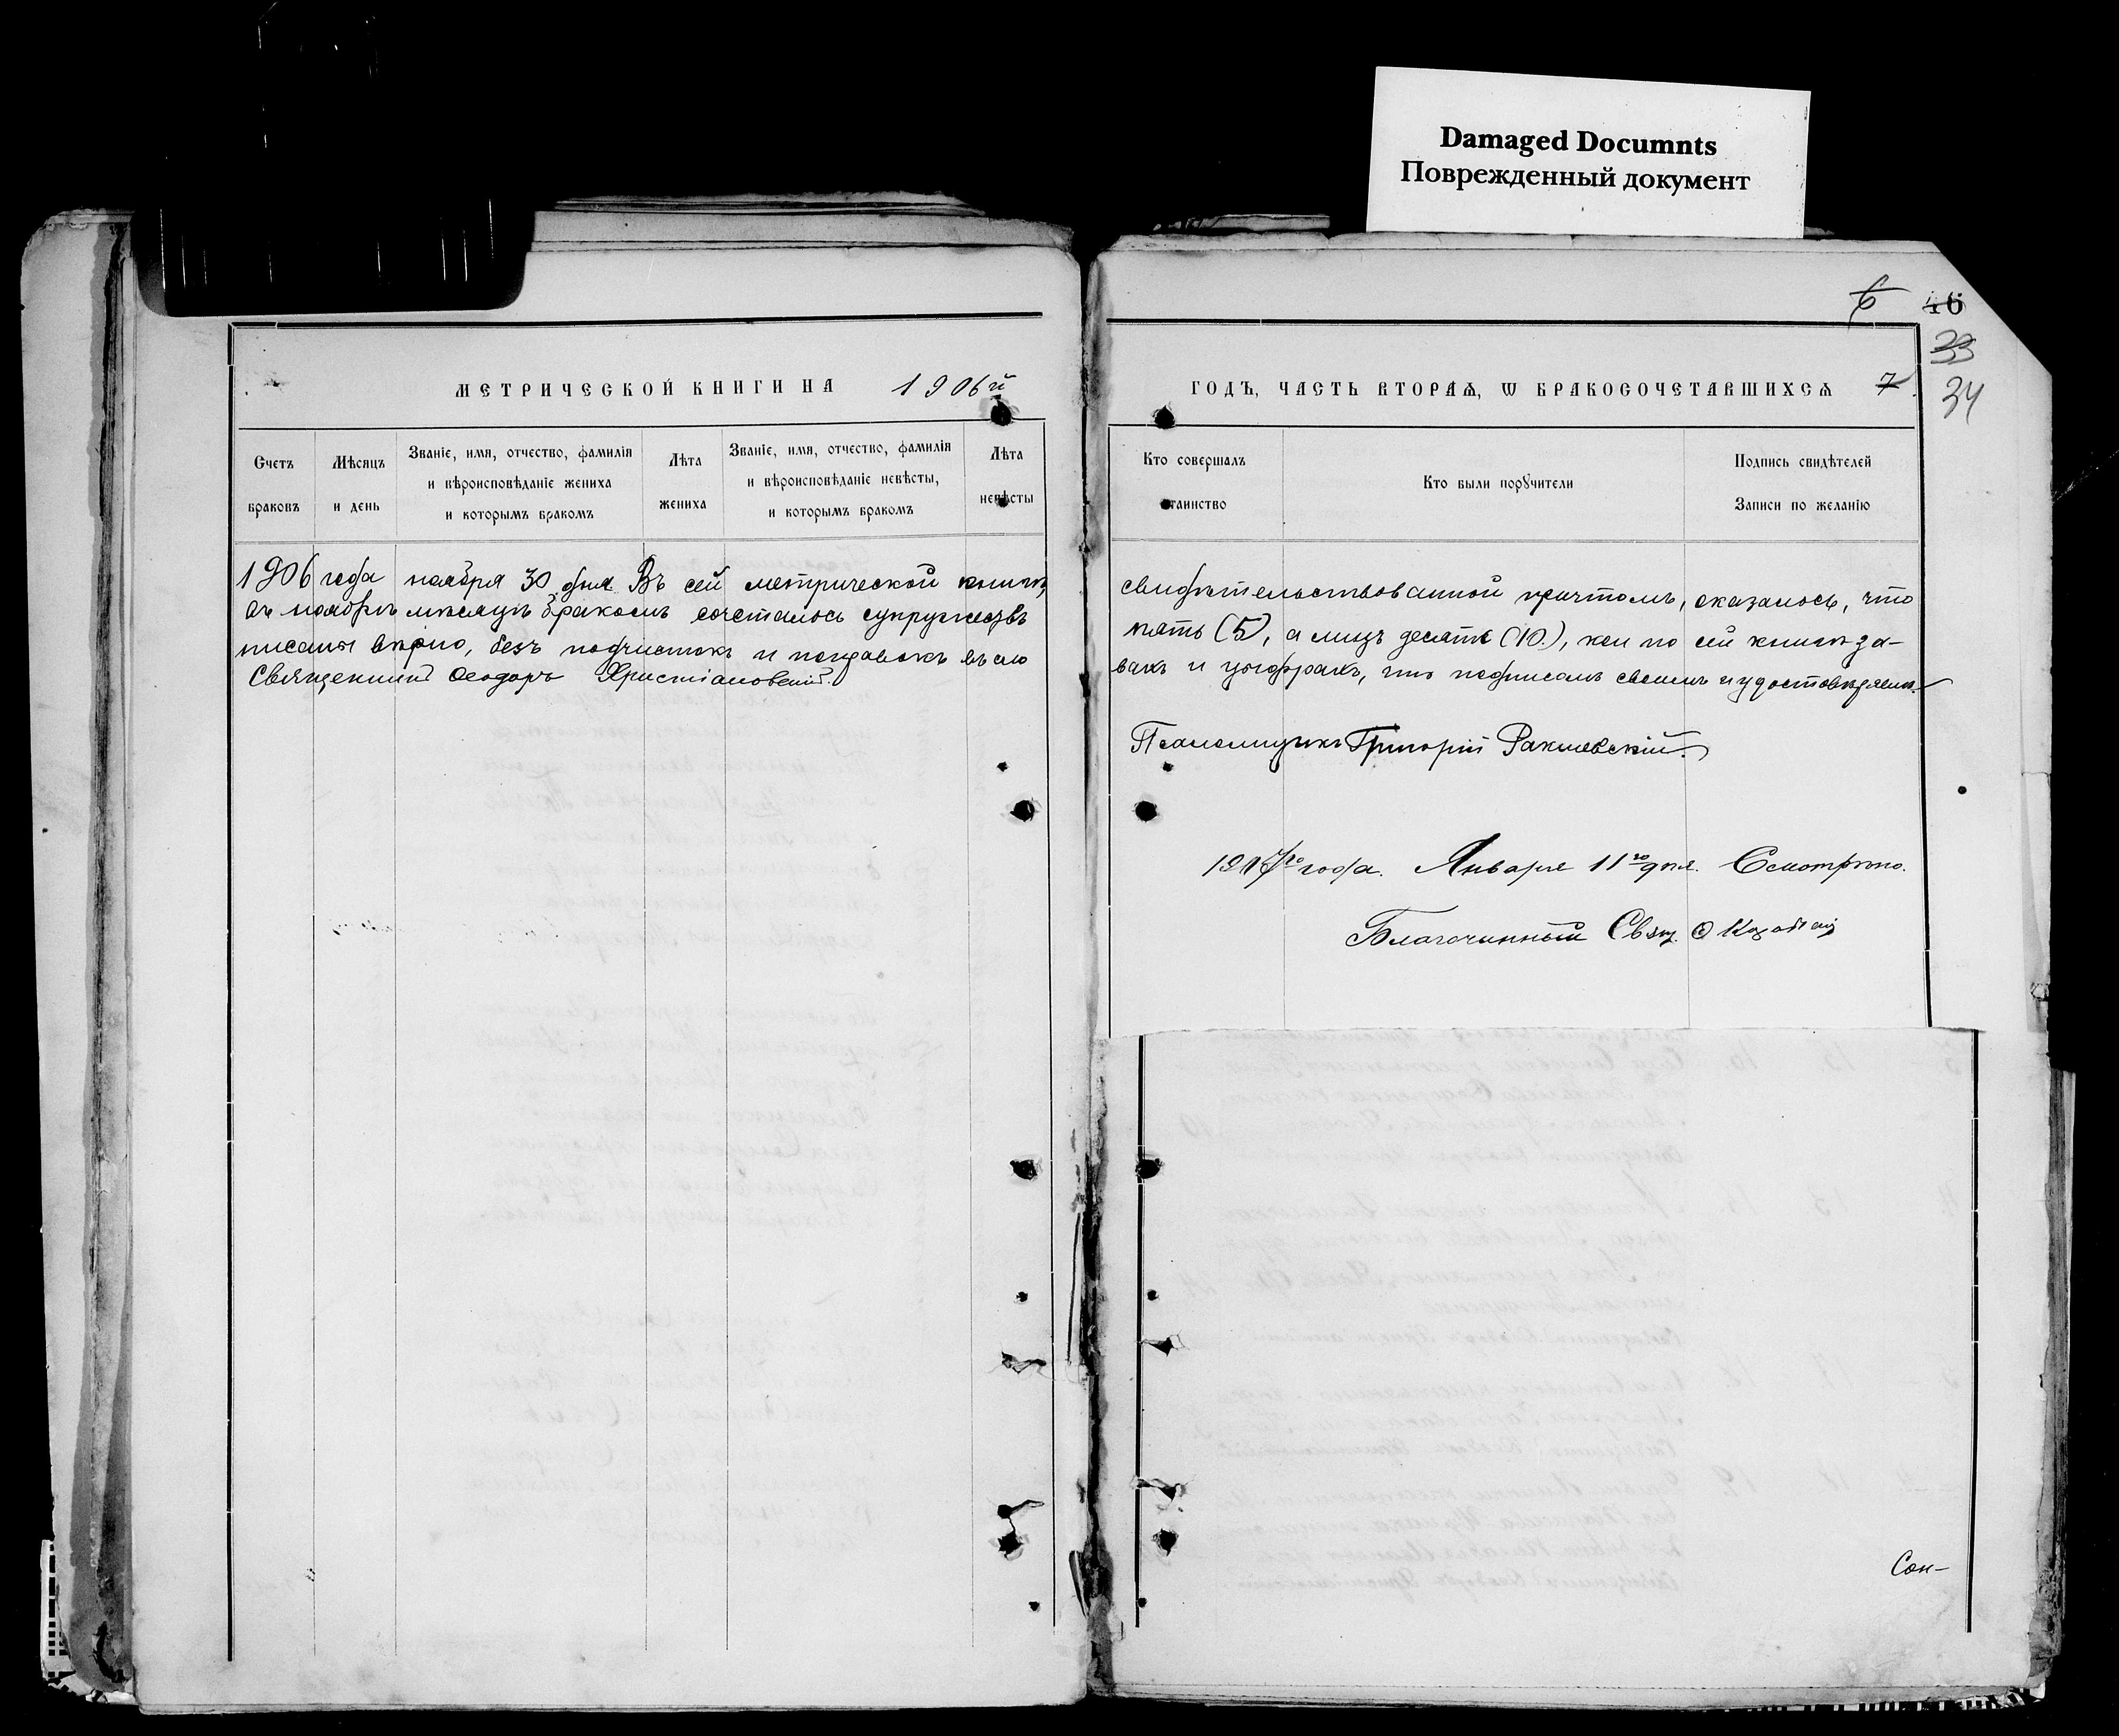 Damaged Documnts
Поврежденный документ
6 46
33
34
МЕТРИЧЕСКОЙ КНИГИ НА 1906й
ГОДЪ, ЧАСТЬ ВТОРАѦ, Ѡ БРАКОСОЧЕТАВШИХСѦ 7
Счетъ браковъ
Мѣсяцъ и день
Званіе, имя, отчество, фамилія и вѣроисповѣданіе жениха и которымъ бракомъ
Лѣта жениха
Званіе, имя, отчество, фамилія и вѣроисповѣданіе невѣсты, и которымъ бракомъ
Лѣта невѣсты
Кто совершалъ таинство
Кто были поручители
Подпись свидѣтелей Записи по желанію
1906 года ноября 30 дня Въ сей метрической книгѣ, свидѣтельствованной причтомъ, оказалось, что
въ ноябрѣ мѣсяцѣ бракомъ сочеталось супружествъ пять (5), а лицъ десять (10), кои по сей книгѣ за-
писаны вѣрно, безъ подчистокъ и поправокъ въ словахъ и цыфрахъ, что подписомъ своимъ и удостовѣряемъ.
Священникъ Ѳеодоръ Христіановскій.
Псаломщикъ Григорій Ракшевскій.
1907го года. Января 11го дня. Смотрѣно.
Благочинный Свящ.
Сон-